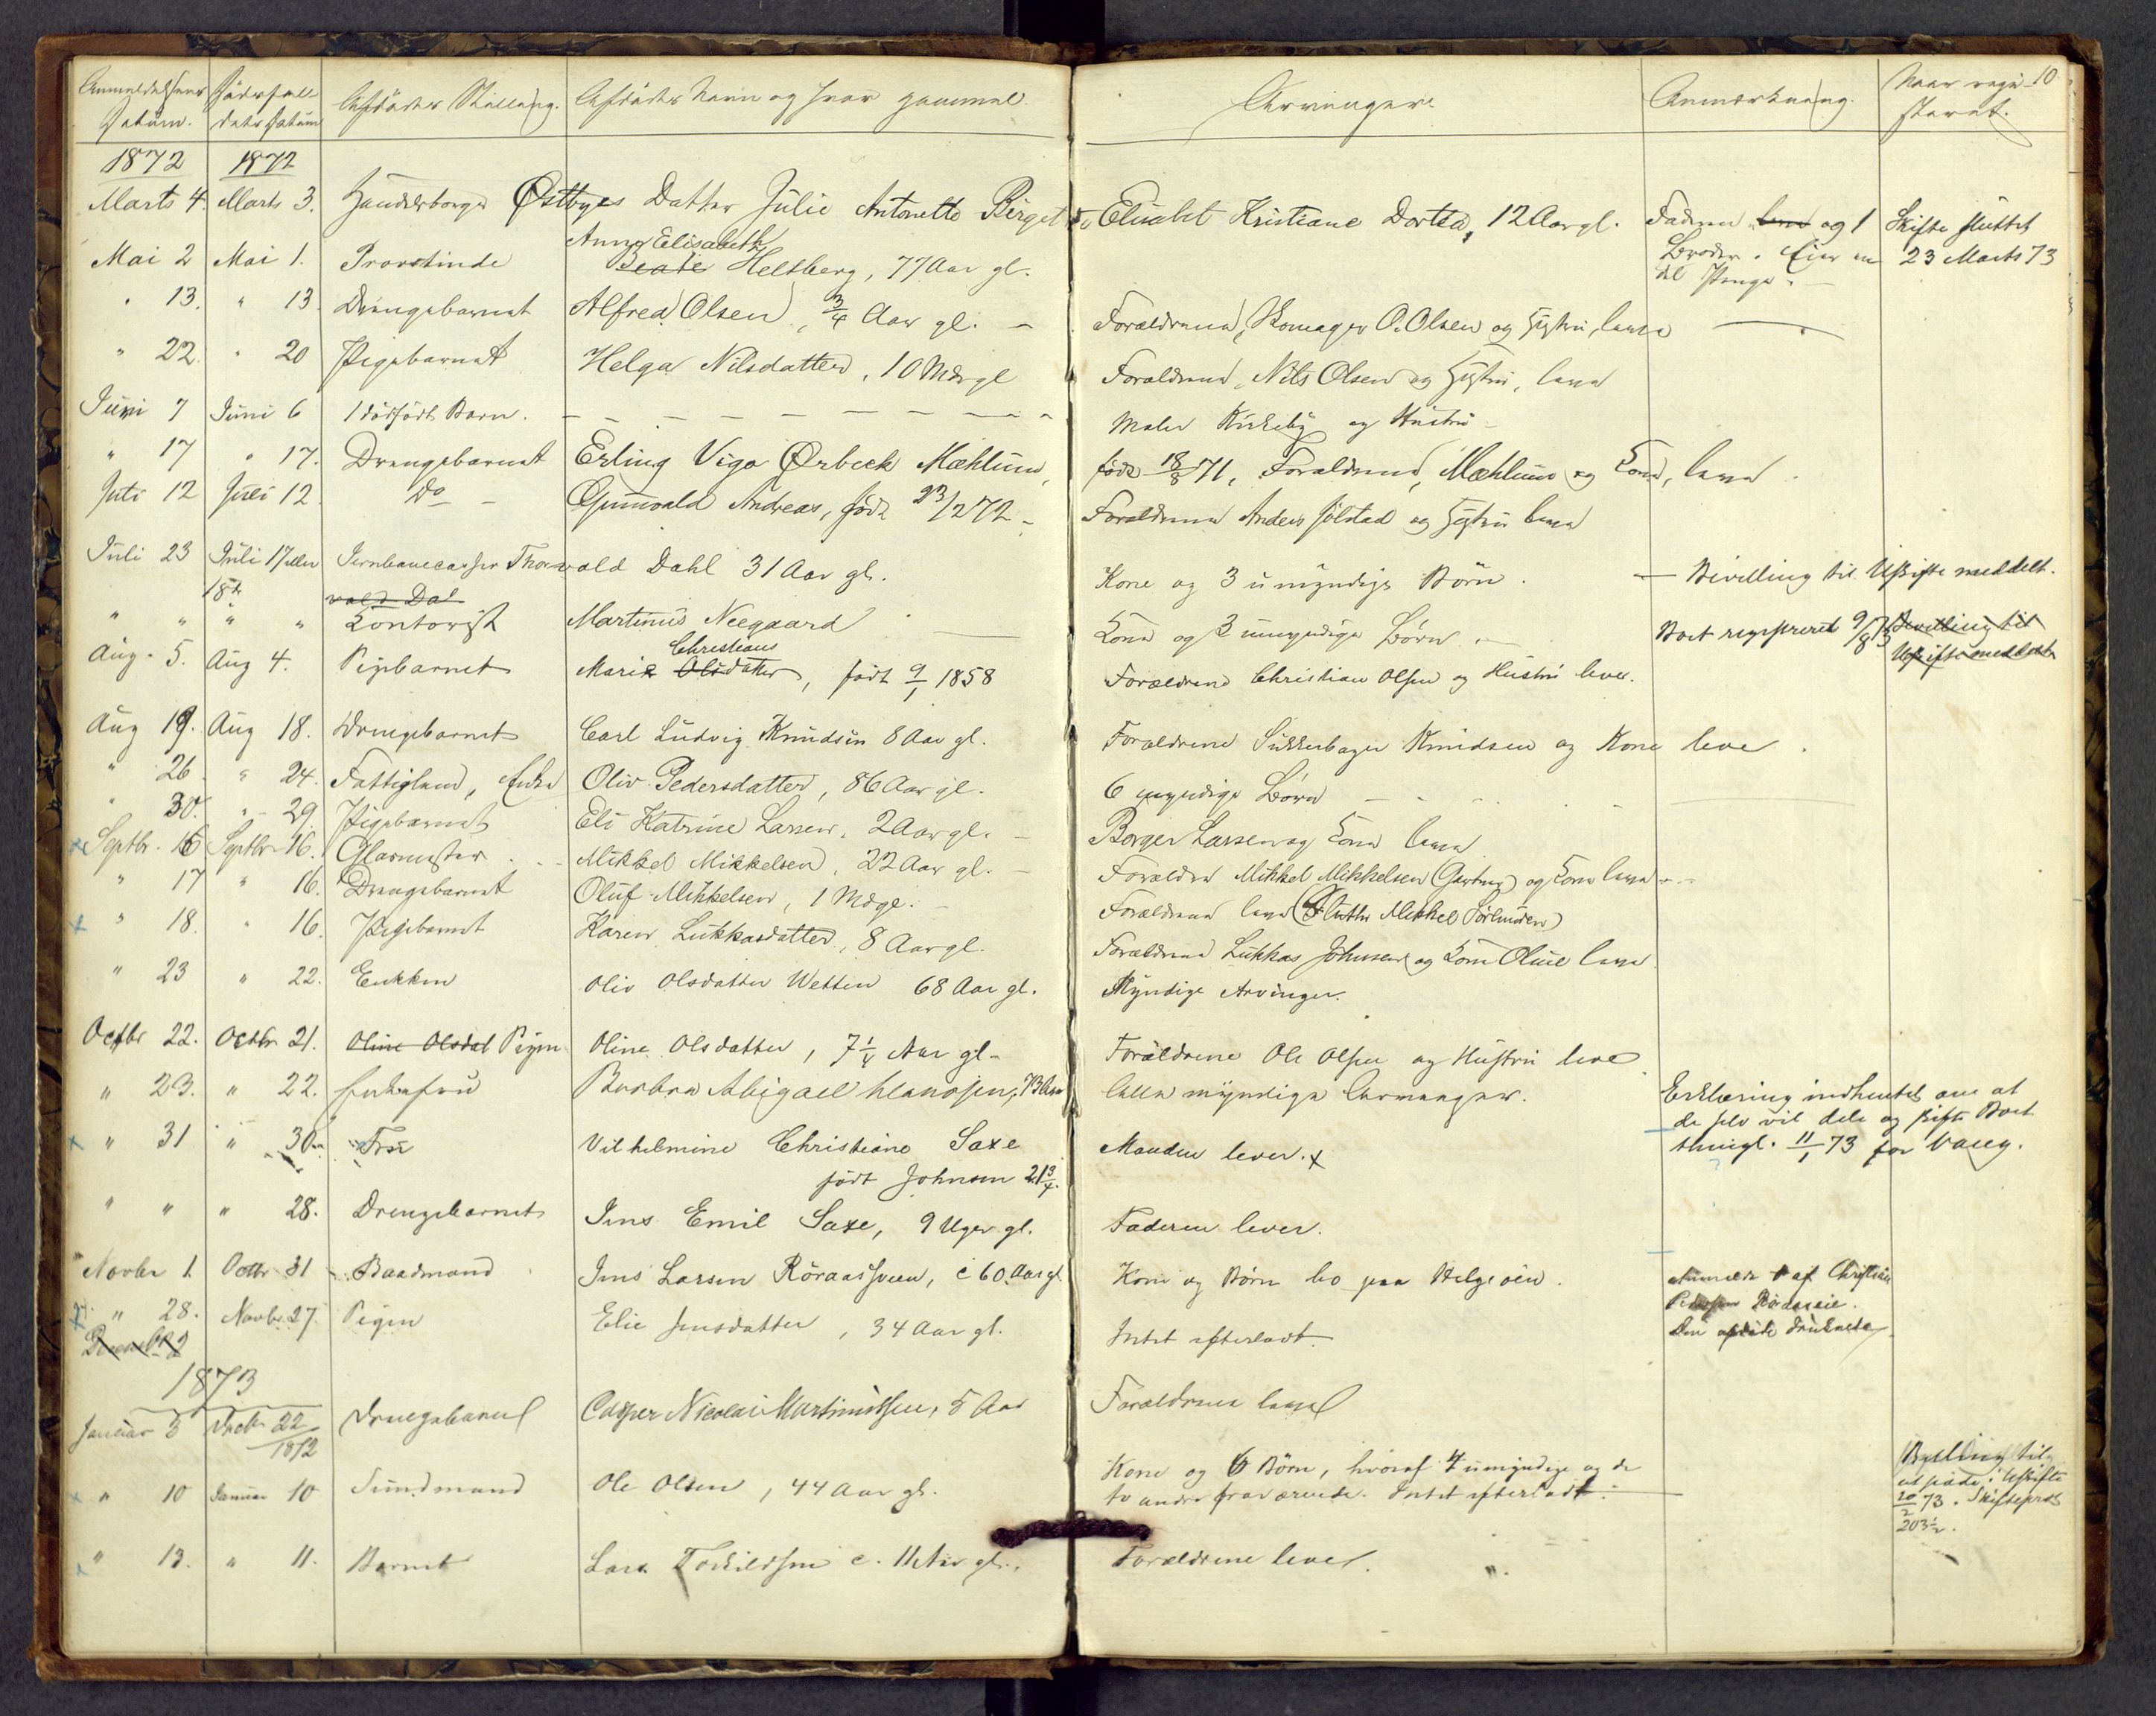 Anmeldelsens Datum. Dödsfaldets Datum Afdödes Stilling. Afdödes Navn og hvor gammel. Arvinger. Anmærkning. Naar regi- 10
steret.
1872 1872
Marts 4. Marts 3. Handelsborger Østbyes Datter Julie Antonette Birgitte Elisabet Kristiane Dortea, 12 Aar gl. Faderen og 1 Skifte sluttet
Broder. Eier en 23 Marts 73
del Penge.
Anne Elisabeth
Mai 2 Mai 1. Provstinde Beate Heltberg, 77 Aar gl.
" 13. " 13 Drengebarnet Alfred Olsen, 3/4 Aar gl. - Forældrene, Skomager O. Olsen og Hustru, leve
" 22. " 20 Pigebarnet Helga Nilsdatter, 10 Mdr gl Forældrene, Nils Olsen og Hustru, leve
Juni 7 Juni 6 1 dödfödt Barn. Maler Kirkeby og Hustru
" 17 " 17. Drengebarnet Erling Vigo Ørbeck Mæhlum, födt 18/8 71, Forældrene, Mæhlum og Kone, leve.
Juli 12 Juli 12. Do - Gunvald Andreas, födt 23/2 72 - Forældrene Anders Jölstad og Hustru leve
Juli 23 Juli 17 eller Jernbanecasser Thorvald Dahl 31 Aar gl. Kone og 3 umyndige Börn. - Bevilling til Uskifte meddelt.
18de vald Dal
" " " " Kontorist Martinus Neegaard Kone og 3 umyndige Börn. - Boet registreret 9/8 73 Bevilling til
Uskifte meddelt
Christians
Aug. 5. Aug 4. Pigebarnet Marie Olsdatter, födt 9/1 1858 Forældrene Christian Olsen og Hustru lever.
Aug 19. Aug 18. Drengebarnet Carl Ludvig Knudsen 8 Aar gl. Forældrene Sukkerbager Knudsen og Kone leve.
" 26. " 24. Fattiglem, Enke Oliv Pedersdatter, 86 Aar gl. 6 myndige Börn
" 30. " 29. Pigebarnet Eli Katrine Larsen, 2 Aar gl. - Borger Larsen og Kone leve
Septbr. 16 Septbr 16. Glarmester Mikkel Mikkelsen, 22 Aar gl. - Forældre Mikkel Mikkelsen (Gartner) og Kone leve
" 17 " 16. Drengebarnet Oluf Mikkelsen, 1 Md gl. - Forældrene leve ( Mikkel Sörlunden)
" 18. " 16. Pigebarnet Karen Lukkasdatter, 8 Aar gl. Forældrene Lukkas Johnsen og Kone Oline leve.
" 23 " 22. Enkken Oliv Olsdatter Wetten 68 Aar gl. Myndige Arvinger.
Octbr 22. Octbr 21. Oline Olsdat Pigen Oline Olsdatter, 7 1/4 Aar gl. Forældrene Ole Olsen og Hustru leve.
" 23. " 22. Enkefru Barbra Abigael Clausen, 73 Aar Alle myndige Arvinger. Erklæring indhentet om at
de selv vil dele og skifte Boet
thingl. 11/1 73 for Vang.
" 31 " 30. Fru Vilhelmine Christiane Saxe Manden lever. x
födt Johnsen 21 3/4.
" " " 28. Drengebarnet Jens Emil Saxe, 9 Uger gl. Faderen lever.
Novbr 1. Octbr 31 Baadmand Jens Larsen Röraasveen, c 60 Aar gl. Kone og Börn bo paa Helgeöen. Anmeldt af Christian
Pedersen
Den afdöde druknede
" 28. Novbr. 27. Pigen Elie Jensdatter, 34 Aar gl. Intet efterladt.
Decembr 2
1873
Januar 3 Decbr. 22 Drengebarnet Casper Nicolai Martinussen, 5 Aar Forældrene leve
1872
" 10 Januar 10 Sundmand Ole Olsen, 44 Aar gl. Kone og 6 Börn, hvoraf 4 umyndige og de
to andre fraværende. Intet efterladt. Bevilling til
at sidde i Uskifte
20/2 73. Skifteprot
203 1/2.
" 13. " 11. Barnet Lars Torkildsen c. 11 Aar gl. Forældrene lever.